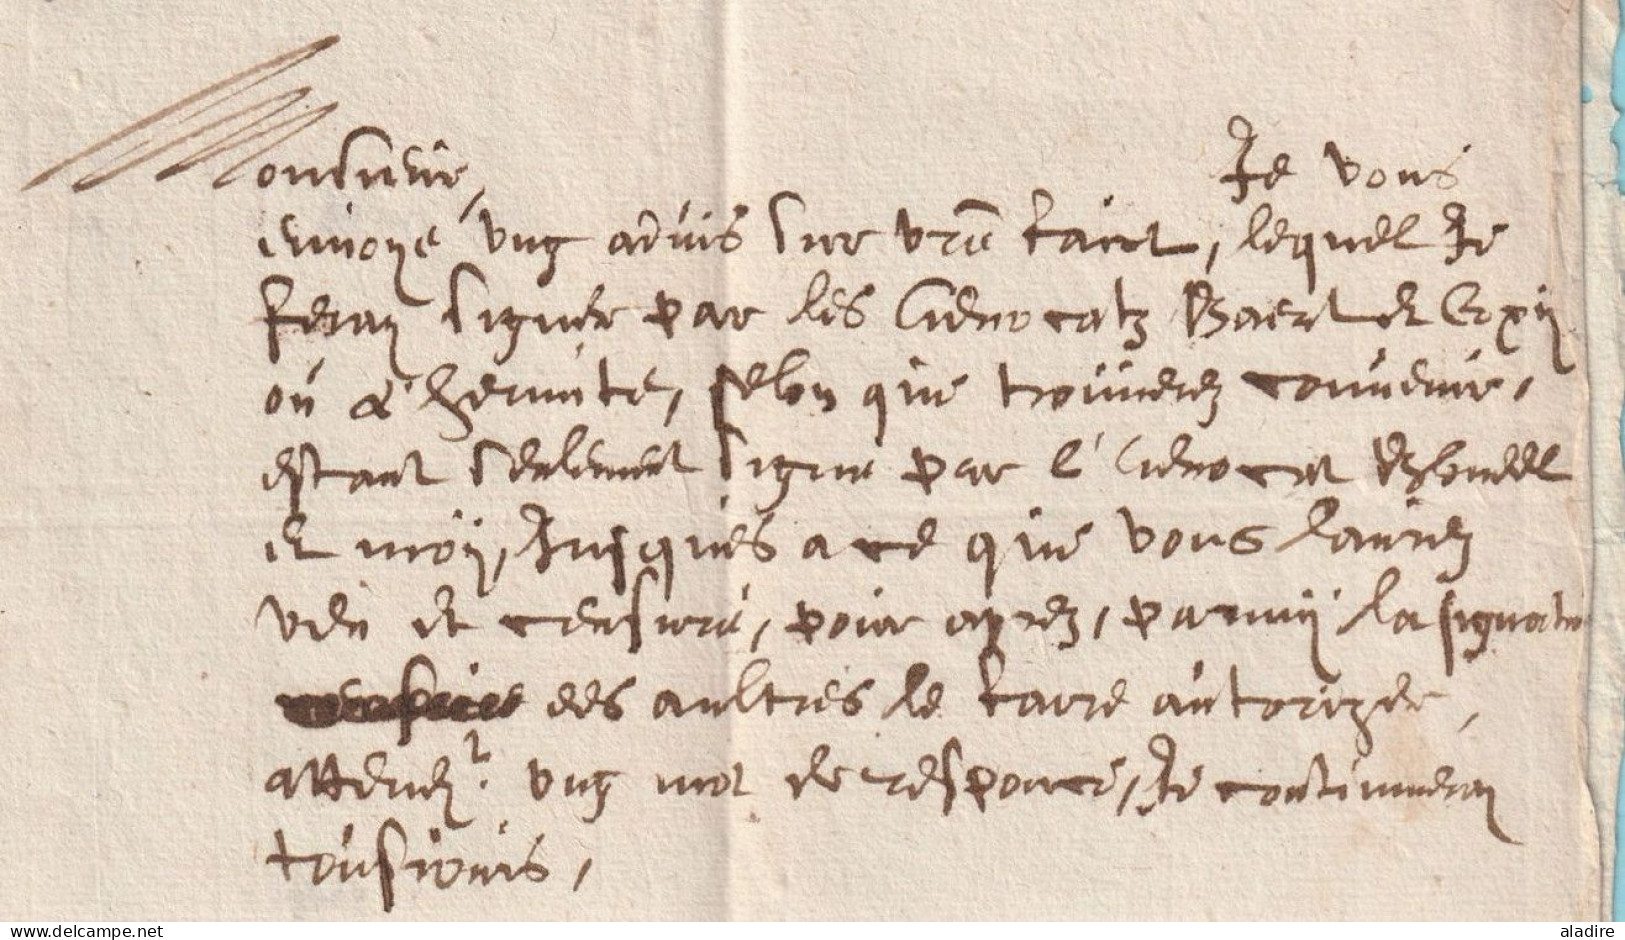 Monsieur,
Je vous
envoye ung advis sur vre faict, lequel Je
feray signer par les Advocatz Baert et
ou l'hermite, selon que trouverez convenir,
estant seulement signe par l'Advocat
et moy, Jusques a ce que vous l'aurez
veu et censuré, pour apres, parmy la signatu
des aultres le faire autorizer,
attend.t ung mot de responce, Je continueray
tousjours,
www.delcampe.net
aladire